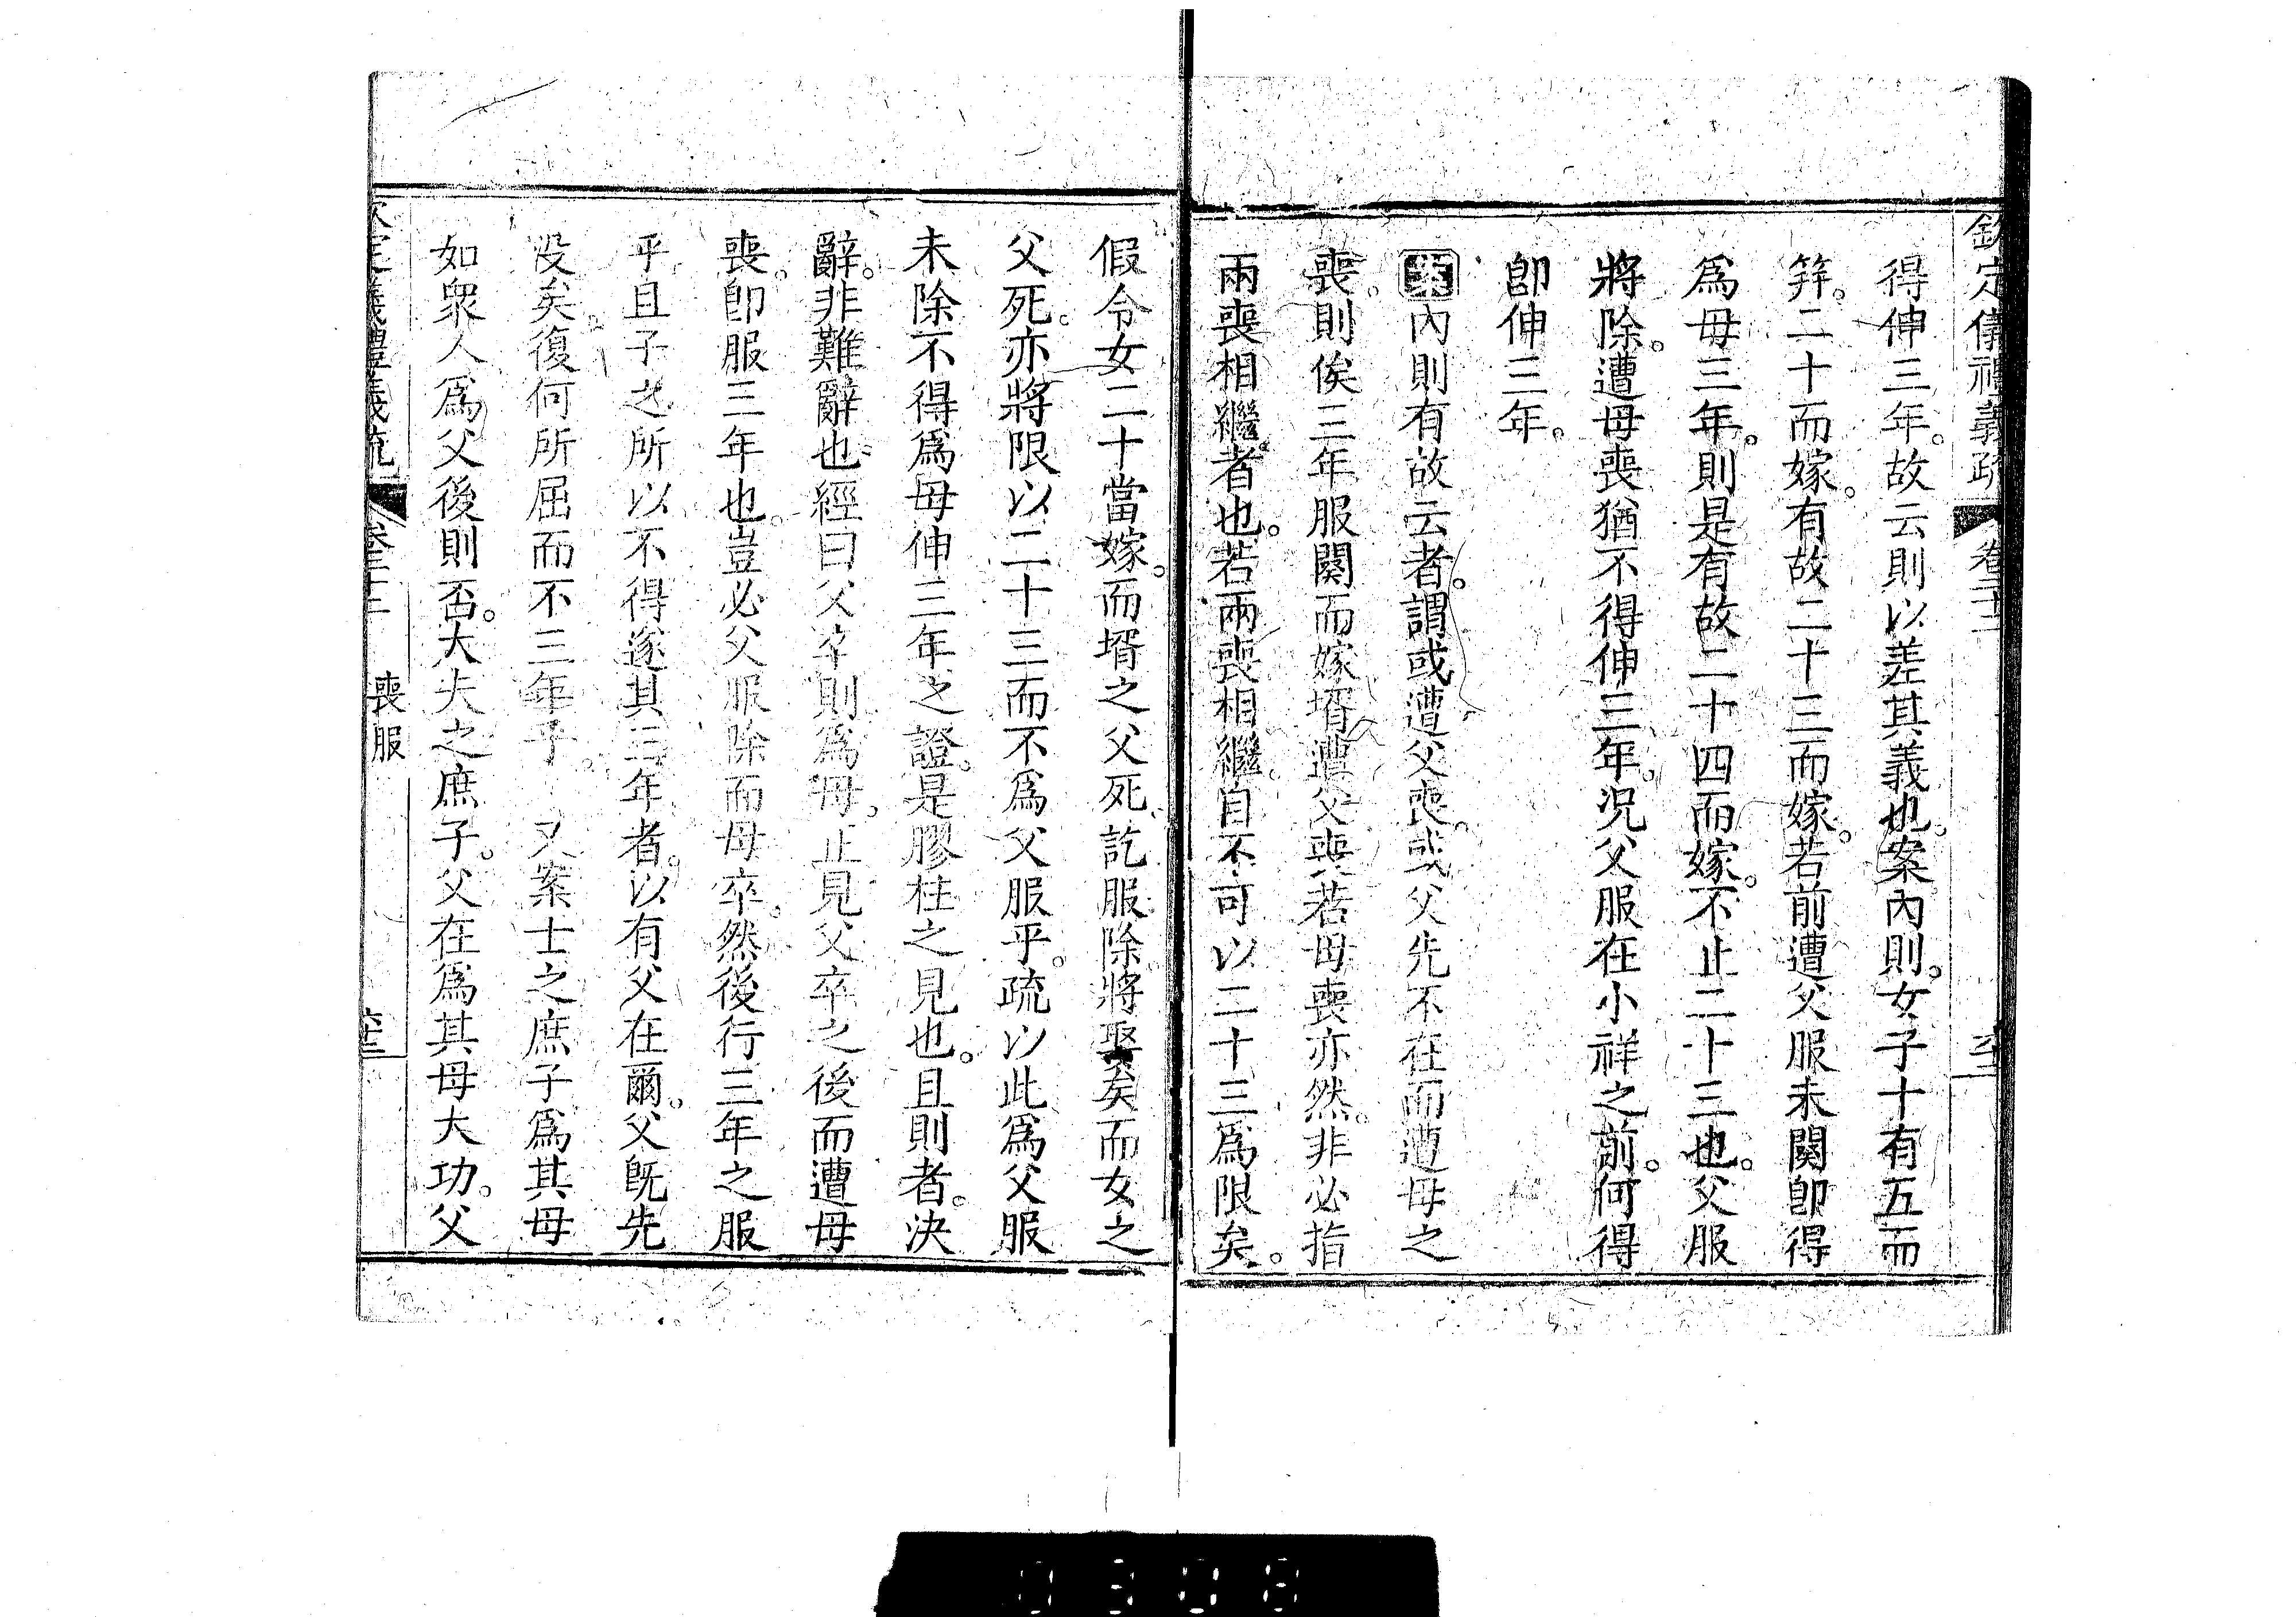 欽定儀禮義疏 卷二十二
得伸三年。故云則以差其義也。案內則。女子十有五而
筓。二十而嫁。有故二十三而嫁。若前遭父服未闋卽得
爲母三年。則是有故二十四而嫁。不止二十三也。父服
將除。遭母喪猶不得伸三年。况父服在小祥之前。何得
卽伸三年。
案內則有故云者。謂或遭父喪。或父先不在而遭母之
喪。則俟三年服闋而嫁壻遭父喪若母喪亦然。非必指
兩喪相繼者也。若兩喪相繼。自不可以二十三爲限矣。
假令女二十當嫁。而壻之父死。訖服除。將娶矣而女之
父死。亦將限以二十三而不爲父服乎。疏以此爲父服
未除不得爲母伸三年之證。是膠柱之見也。且則者。決
辭。非難辭也。經曰父卒則爲母。止見父卒之後而遭母
喪。卽服三年也。豈必父服除而母卒。然後行三年之服
乎且子之所以不得遂其三年者。以有父在爾。父旣先
沒矣。復何所屈而不三年乎。 又案士之庶子爲其母
如眾人爲父後則否。大夫之庶子。父在爲其母大功。父
欽定儀禮義疏 卷二十二 喪服
0308